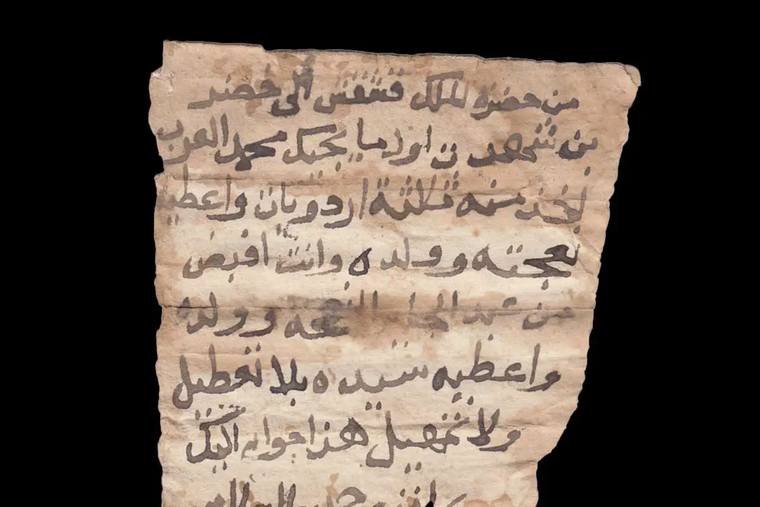 من حضره الملك قشقش الى خضر
بن شهد اولما يجيك محمد العرب
تاخذ منه ثلثة اردويات واعطيه
نعجته وولده وانت اقبض
من عبد الجابر النعجه وولده
واعطيه سيده بلا تعطيل
ولا تمهيل هذا جوابى اليك